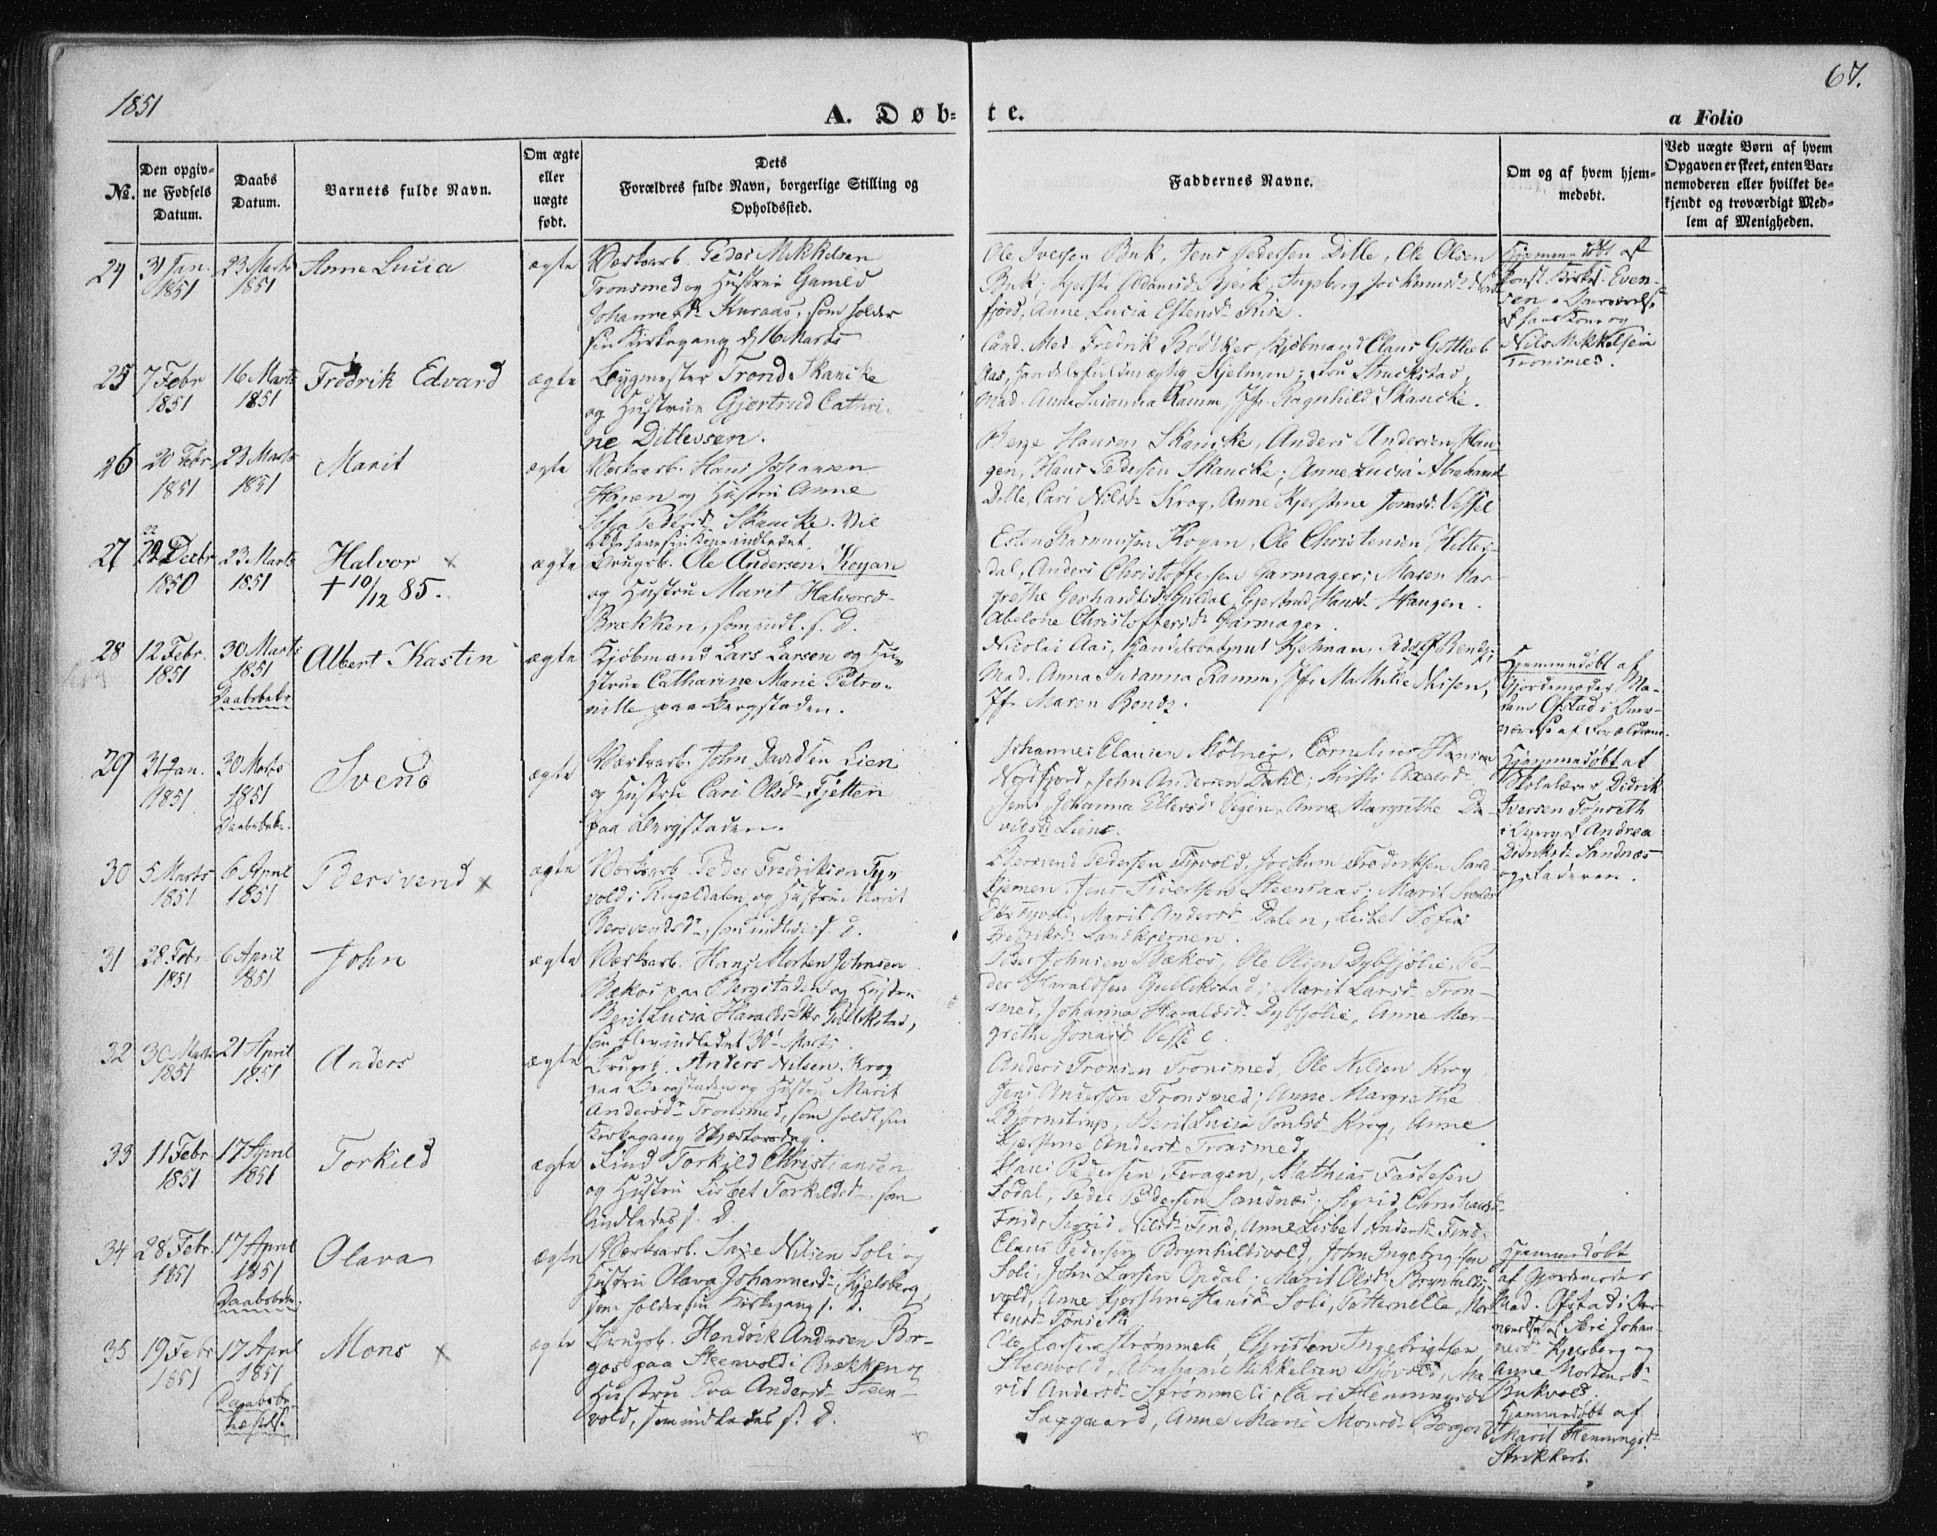 1851
67.
A. Døb-te.
a Folio
No.
Den opgiv-
ne Fødsels
Datum.
Daabs
Datum.
Barnets fulde Navn.
Om ægte
eller
uægte
født.
Dets
Forældres fulde Navn, borgerlige Stilling og
Opholdssted.
Faddernes Navne.
Om og af hvem hjem-
medøbt.
Ved uægte Børn af hvem
Opgaven er skeet, enten Bar-
nemoderen eller hvilket be-
kjendt og troværdigt Med-
lem af Menigheden.
24 31 Jan. 1851 23 Marts 1851 Anna Lucia ægte
Værksarb. Peder Mikkelsen
Tronsmed og Hustrue
Johannesdr Kuraas, som holder
sin Kirkegang d. 16 Marts
Ole Iversen Buk, Jens Pedersen Dille, Ole Olsen
Buk; Ingeborg
fjord, Anne Lucia Estensdr Rise.
Hjemmedøbt af
Even-
sen i Overværelse
af hans Kone og
Nils Mikkelsen
Tronsmed.
25 7 Febr 1851 16 Marts 1851 Fredrik Edvard ægte
Bygmester Trond Skancke
og Hustrue Gjertrud Cathri-
ne Ditlevsen.
Cand. Med. Fredrik Bødtker, Kjøbmand Claus Gottlieb
Aas,
Mad. Anna Susanna Ramm, Jfr. Ragnhild Skancke.
26 20 Febr 1851 23 Marts 1851 Marit ægte
Værksarb. Hans Johansen
og Hustru Anne
Sofia Pedersd. Skancke. Vil
Hansen Skancke, Anders Andersen Hau-
gen, Hans Pedersen Skancke; Anne Lucia Abraham
Dille, Cari Nilsdr Krog, Anne Kjerstine Jonasdr Vessel
27 22 Decbr 1850 23 Marts 1851 Halvor × ægte
+ 10/12 85.
Brugsb. Ole Andersen Kojan
og Hustru Marit Halvorsd.
Brækken, som indl. s. D.
Esten Rasmussen Kojan, Ole Christensen Hitter-
dal, Anders Christoffersen Garmager; Maren Mar-
grethe Gerhardtsdr Guldal, Gjertrud Hansdr Haugen.
Abelone Christoffersdr Garmager.
28 12 Febr. 1851 30 Marts 1851 Albert Kastin ægte
Daabsbekr
Kjøbmand Lars Larsen og Hu-
strue Catharine Marie Petro-
nille paa Bergstaden.
Nicolai Aas,
Mad. Anna Susanna Ramm, Jfr. Mathilde Nisen,
Jfr. Maren
Hjemmedøbt af
Gjordemoder Ma-
dam Ofstad i Over-
værelse af Forældrene.
29 31 Jan. 1851 30 Marts 1851 Svend ægte
Daabsbekr.
Værksarb. John Davidsen Lien
og Hustru Cari Olsdr Fjetten
paa Bergstaden.
Johannes Clausen Cornelius Hansen
Nordfjord, John Andersen Dahl; Kirsti
Johanna Anne Margrethe Da-
vidsdr Lien.
Hjemmedøbt af
Skolelærer Didrik
Iversen Tønseth
Andrea
Didriksdr Sandnæs
og Faderen.
30 5 Marts 1851 6 April 1851 Bersvend × ægte
Værksarb. Peder Fredriksen Fy-
vold i Rugeldalen og Hustrue Marit
Bersvendsdr, som indledes s. D.
Bersvend Pedersen Fyvold, Jochum Fredriksen Sand-
kjernen, Jens Sivertsen Steensaas; Marit
Marit Andersdr Dalen, Lisbet Sofia
Fredriksdr Sandkjernen.
31 28 Febr 1851 6 April 1851 John ægte
Værksarb. Hans Morten Johnsen
Bækos paa Bergstaden og Hustru
Berit Lucia Haraldsdtr Gullikstad,
som blev indledet 30te Marts.
Peder Johnsen Bækos, Ole Olsen Dybsjølie, Pe-
der Haraldsen Gullikstad; Marit Larsdr Tron-
smed, Johanna Haraldsdr Dybsjølie, Anne Mar-
grethe Jonasdr Vessel.
32 30 Marts 1851 21 April 1851 Anders ægte
Brugsb. Anders Nilsen Krog
paa Bergstaden og Hustru Marit
Andersdr Tronsmed, som holdt sin
Kirkegang Skjertorsdag.
Anders Tronsen Tronsmed, Ole Nilsen Krog
Jens Andersen Tronsmed; Anne Margrethe
Bjørnstrup, Berit Lucia Poulsd Krog, Anne
Kjerstine Andersdr Tronsmed
33 11 Febr 1851 17 April 1851 Torkild ægte
Find Torkild Christiansen
og Hustru Lisbet Torkildsdr, som
indledes s. D.
Hans Pedersen Feragen, Mathias Fastesen
Sødal, Peder Pedersen Sandnæs; Sigrid Christiansdr
Find, Sigrid Nilsdr Find, Anne Lisbet Andersdr Find.
34 28 Febr. 1851 17 April 1851 Olava ægte
Daabsbekr.
Værksarb. Saxe Nilsen Soli og
Hustru Olava Johannesdr Kjelsberg,
som holder sin Kirkegang s. D.
Claus Pedersen Brynhildsvold, John Ingebrigtsen
Soli, John Larsen Opdal; Marit Olsdr Brynhilds-
vold, Anne Kjerstine Hansdr Soli, Petternelle Mor-
tensdr Tønseth
Hjemmedøbt
af Gjordemoder
Mad. Ofstad i Over-
værelse af Seri Johan-
nesdr Kjelsberg og
Anne Mortensdr
Bukvold.
35 19 Febr 1851 17 April 1851 Mons × ægte
Daabsbe-
kræftelse
Brugsb. Hendrik Andersen Bor-
gos paa Steenvold i Brækken og
Hustru Eva Andersdr Steen-
vold, som indledes s. D.
Ole Larsen Strømmeli, Christen Ingebrigtsen
Steenvold, Abraham Mikkelsen Sjøvold, Ma-
rit Andersdr Strømmeli, Cari Henningsdr
Saxgaard, Anne Marie Monsdr Borgos
Hjemmedøbt af
Marit Henningsdr
Strikkert.